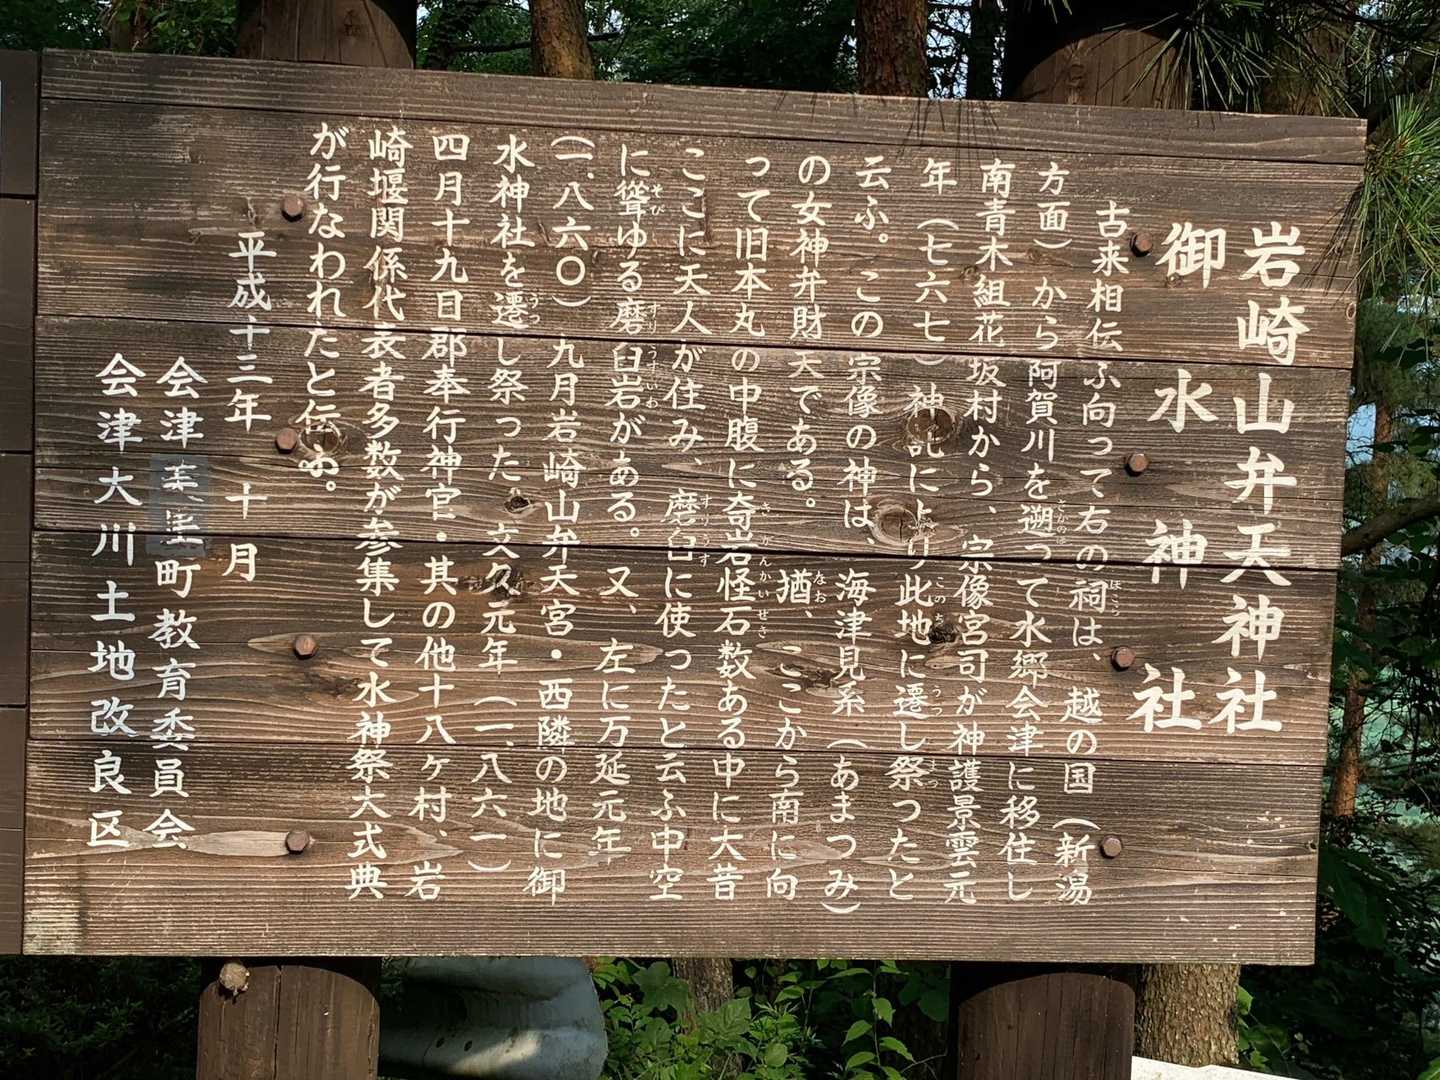 岩崎山弁天神社
御水神社
古来相伝ふ向って右の祠は、越の国(新潟
方面)から阿賀川を遡って水郷会津に移住し
南青木組花坂村から、宗像宮司が神護景雲元
年(七六七)神託により此地に遷し祭つたと
云ふ。この宗像の神は海津見系(あまつみ)
の女神弁財天である。猶、ここから南に向
って旧本丸の中腹に奇岩怪石数ある中に大昔
ここに天人が住み、磨臼に使ったと云ふ中空
に聳ゆる磨臼岩がある。又、左に万延元年
(一、八六〇)九月岩崎山弁天宮・西隣の地に御
水神社を遷し祭った。文久元年(一、八六一)
四月十九日郡奉行神官・其の他十八ヶ村、岩
崎堰関係代表者多数が参集して水神祭大式典
が行なわれたと伝ふ。
平成十三年十月
会津美里町教育委員会
会津大川土地改良区